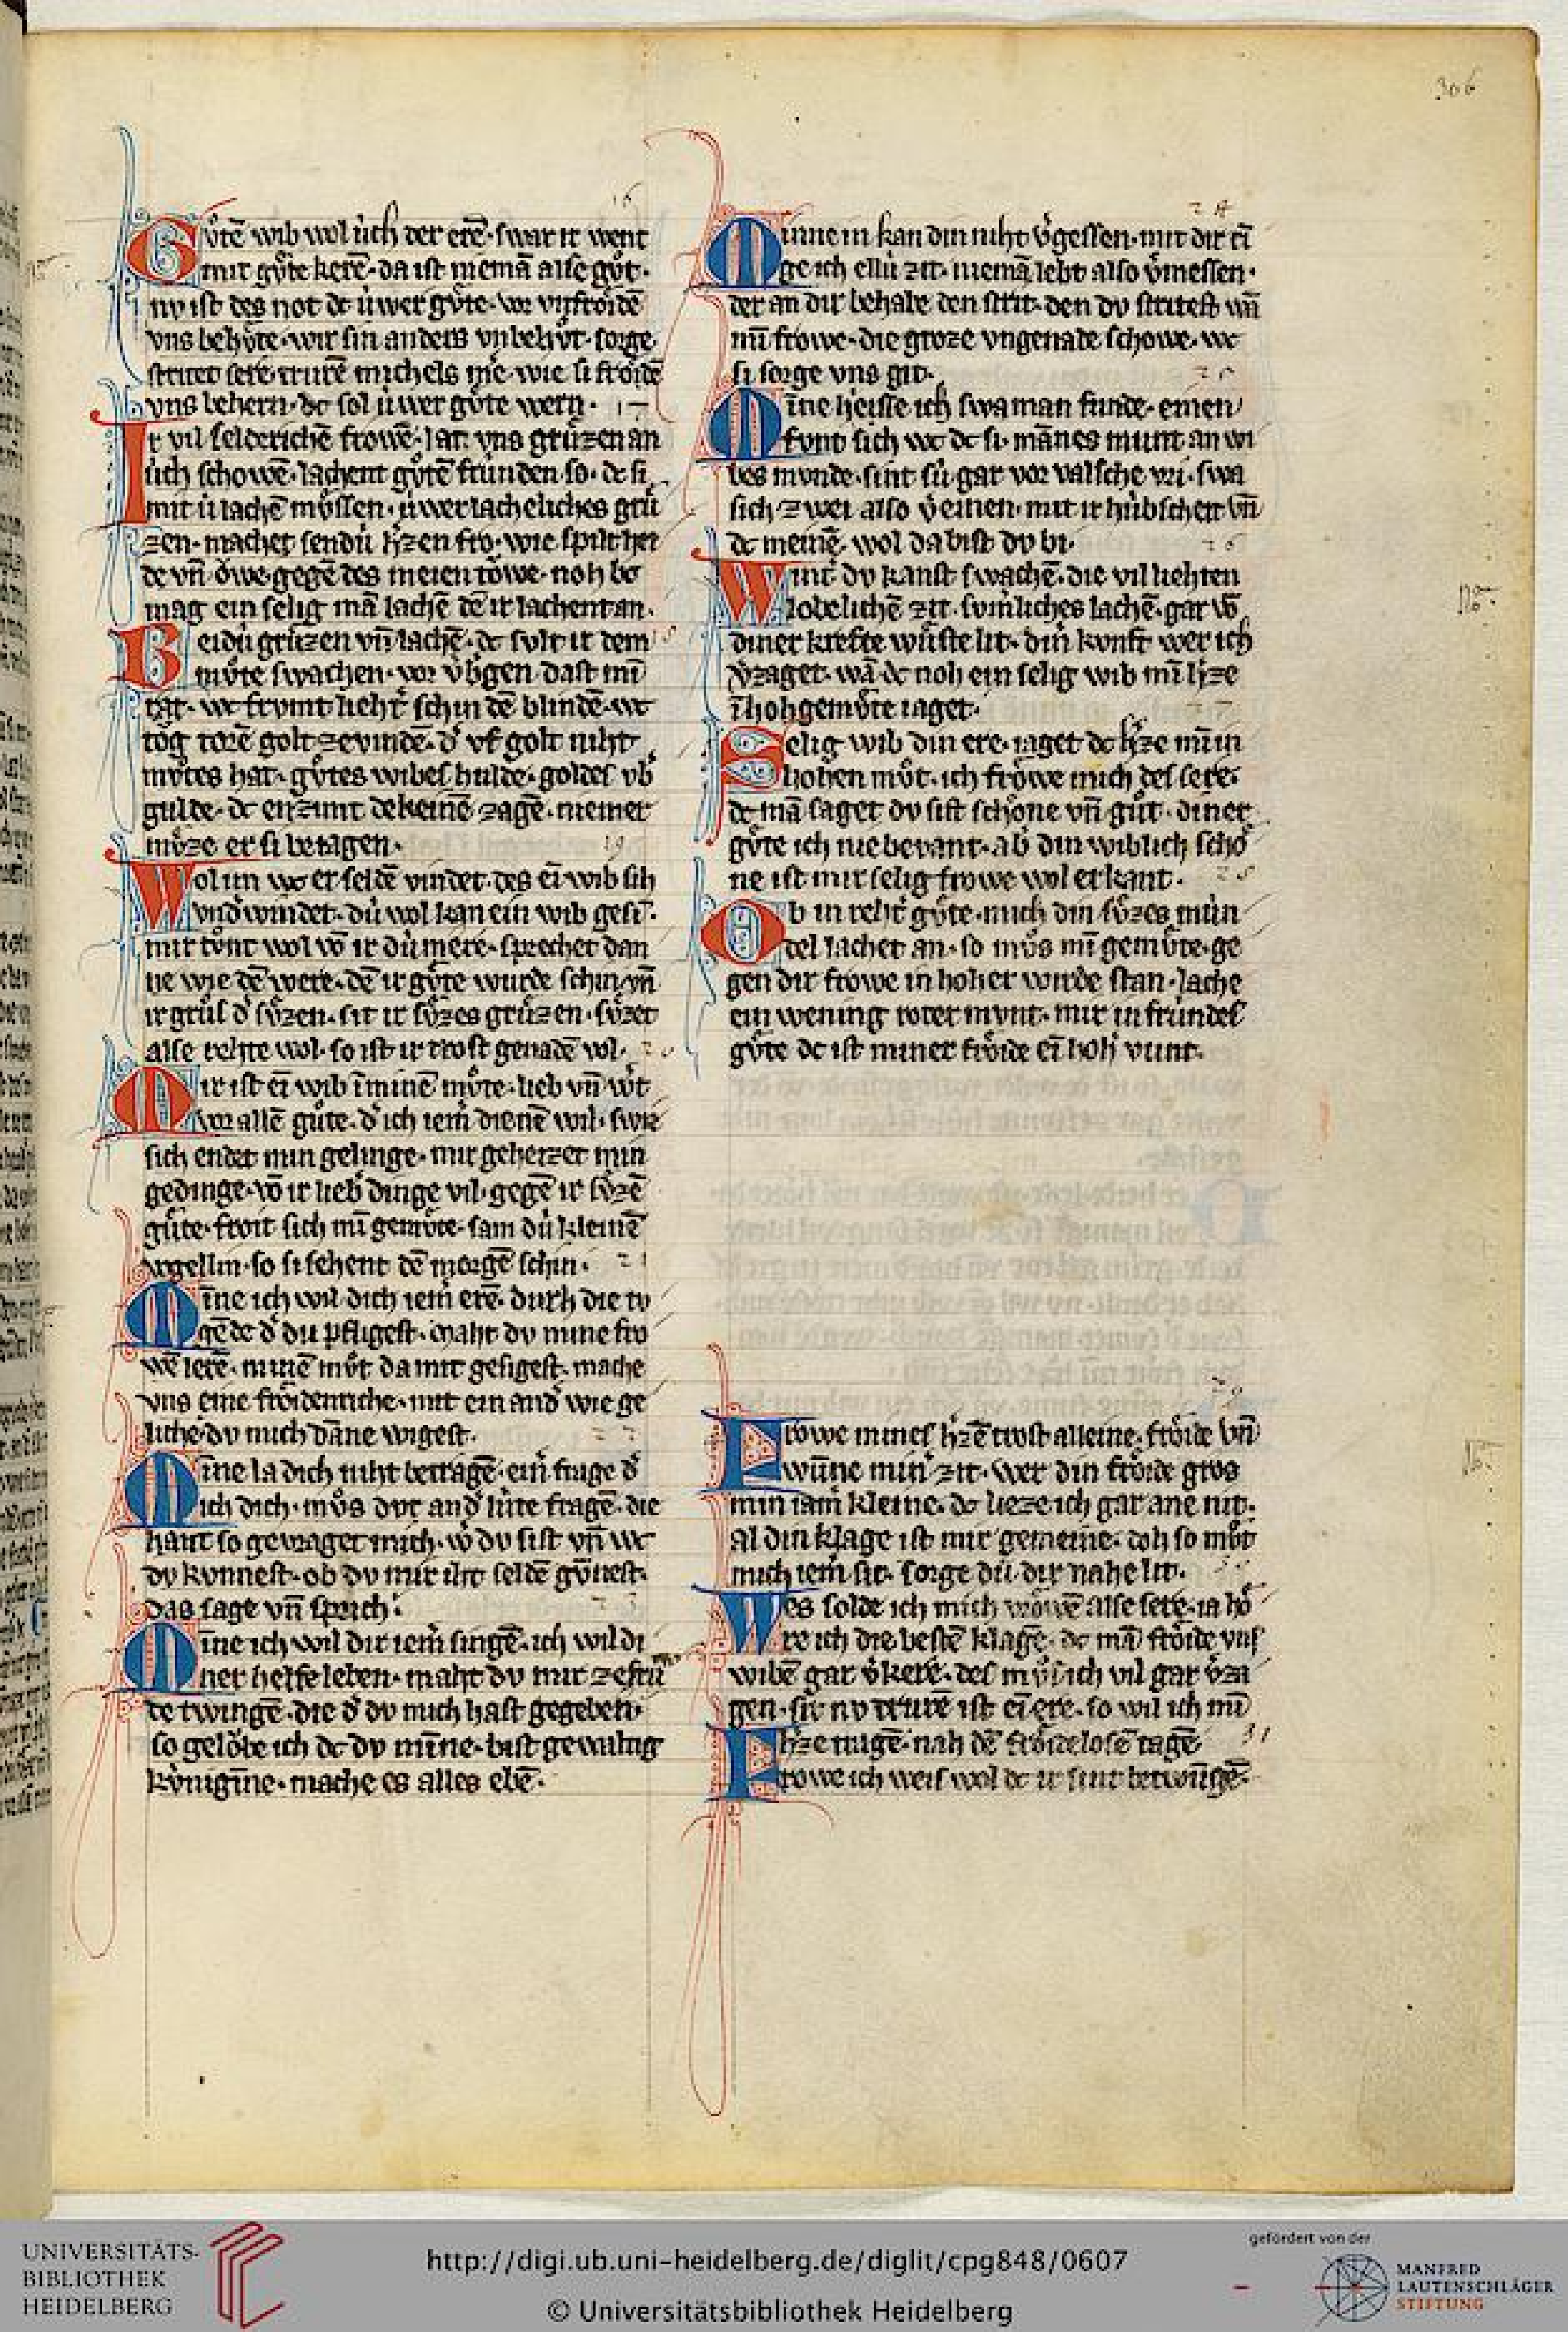 306
16
Gv̊tē wib wol ùch der erē · swar ir went
mit gv̊te kerē · da ist niemā alse gv̊t ·
nv ist des not dc ùwer gv̊te · vor vnfrōidē
vns behv̊te · wir sin anders vnbehv̊t · sorge
stritet sere trurē michels me · wie si frōidē
vns behern · dc sol ùwer gv̊te wern · 17
Ir vil selderichē frowē · lat vns grùzen an
ùch schowē · lachent gv̊tē frùnden so · dc si
mit ù lachē mv̊ssen · ùwer lacheliches grù
zen · machet sendù h̾zen fro · wie spilt hei
de vn̄ ōwe gegē des meien tōwe · noh bc
mag ein selig mā lachē dē ir lachent an ·
Beidù grùzen vn̄ lachē · dc sult ir dem 18
mv̊te swachen · vor v̾bgen · dast min
rat · wc frvmt lieht̾ schin dē blindē · wc
tōg torē golt ze vindē · d̾ vf golt niht
mv̊tes hat · gv̊tes wibes hulde · goldes vb̾
gulde · dc enzimt dekeinē zagē · niemer
mv̊ze er si betagen · 19
Wol im wc er seldē vindet · des ei̅ wib sih
vnd̾ windet · dù wol kan ein wib gesi̅ ·
mir tōnt wol vō ir dù mere · sprechet dan
ne wie dē were · dē ir gv̊te wurde schin · vn̄
ir grùs d̾ sv̊zen · sit ir sv̊zes grùzen · sv̊zet
alse rehte wol · so ist ir trost genadē vol · 20
Mir ist ei̅ wib i̅ minē mv̊te · lieb vn̄ w̾t
vor allē gùte · d̾ ich iem̾ dienē wil · swie
sich endet min gelinge · mir geheizet min
gedinge · vō ir lieb̾ dinge vil · gegē ir sv̊zē
gùte · frōit sich mi̅ gemv̊te · sam dù kleinē
vogellin · so si sehent dē morgē schin · 21
Mi̅ne ich wil dich iem̾ erē · durh die tv
gēde d̾ du pfligest · maht dv mine fro
wē lerē · minē mv̊t da mit gesigest · mache
vns eine frōidenriche · mit ein and̾ wie ge
liche dv mich dāne wigest · 22
Mi̅ne la dich niht betragē · ein̾ frage d̾
ich dich · mv̊s dvr and̾ lùte fragē · die
hant so gevraget mich · w̾ dv sist vn̄ wc
dv kvnnest · ob dv mir iht seldē gv̊nnest ·
das sage vn̄ sprich · 23
Mi̅ne ich wil dir iem̾ singē · ich wil di
ner helfe leben · maht dv mir ze frù
de twingē · die d̾ dv mich hast gegeben ·
so gelōbe ich dc dv mi̅ne · bist gewaltig
kùnigi̅ne · mache es alles ebē ·
24
Minne in kan din niht v̾gessen · mit dir ri̅
ge ich ellù zit · niemā lebt also v̾messen ·
der an dir behabe den strit · den dv stritest vn̄
mi̅ frowe · die groze vngenade schowe · wc
si sorge vns git · 25
Mi̅ne heisse ich swa man funde · einen
fvnt sich wc dc si · mānes munt an wi
bes mvnde · sint sù gar vor valsche vri · swa
sich zwei also v̾einen · mit ir hùbscheit vn̄
dc meinē · wol da bist dv bi · 26
Wint dv kanst swachē · die vil liehten
lobelichē zit · sumliches lachē · gar vō
diner krefte wùste lit · din̾ kvnft wer ich
v̾zaget · wā dc noh ein selig wib mi̅ h̾ze
i̅ hohgemv̊te iaget · 27
Selig wib din ere · iaget dc h̾ze min in
hohen mv̊t · ich frōwe mich des sere ·
dc mā saget dv sist schōne vn̄ gùt · diner
gv̊te ich nie bevant · ab̾ din wiblich schō
ne ist mir selig frowe wol erkant · 28
Ob in reht̾ gv̊te · mich din sv̊zes mùn
del lachet an · so mv̊s mi̅ gemv̊te · ge
gen dir frowe in hoher wirde stan · lache
ein wening roter mvnt · mir in frùndes
gv̊te dc ist miner frōide ei̅ hoh̾ vunt ·
29
Frowe mines h̾zē trost alleine · frōide vn̄
wùnne min̾ zit · wer din frōide gros
min iam̾ kleine · dc lieze ich gar ane nit ·
al din klage ist mir gemeine · doh so mv̊t
mich iem̾ sit · sorge dù dir nahe lit · 30
Wes solde ich mich frōwē alse sere · ia hō
re ich die bestē klagē · dc mā frōide vns
wibē gar v̾kere · des mv̊s ich vil gar v̾za
gen · sit nv trurē ist ei̅ ere · so wil ich min
h̾ze nigē · nah dē frōidelosē tagē 31
Frowe ich weis wol dc ir sint betwūgē ·
UNIVERSITÄTS-
BIBLIOTHEK
HEIDELBERG
http://digi.ub.uni-heidelberg.de/diglit/cpg848/0607
© Universitätsbibliothek Heidelberg
gefördert von der
MANFRED
LAUTENSCHLÄGER
STIFTUNG